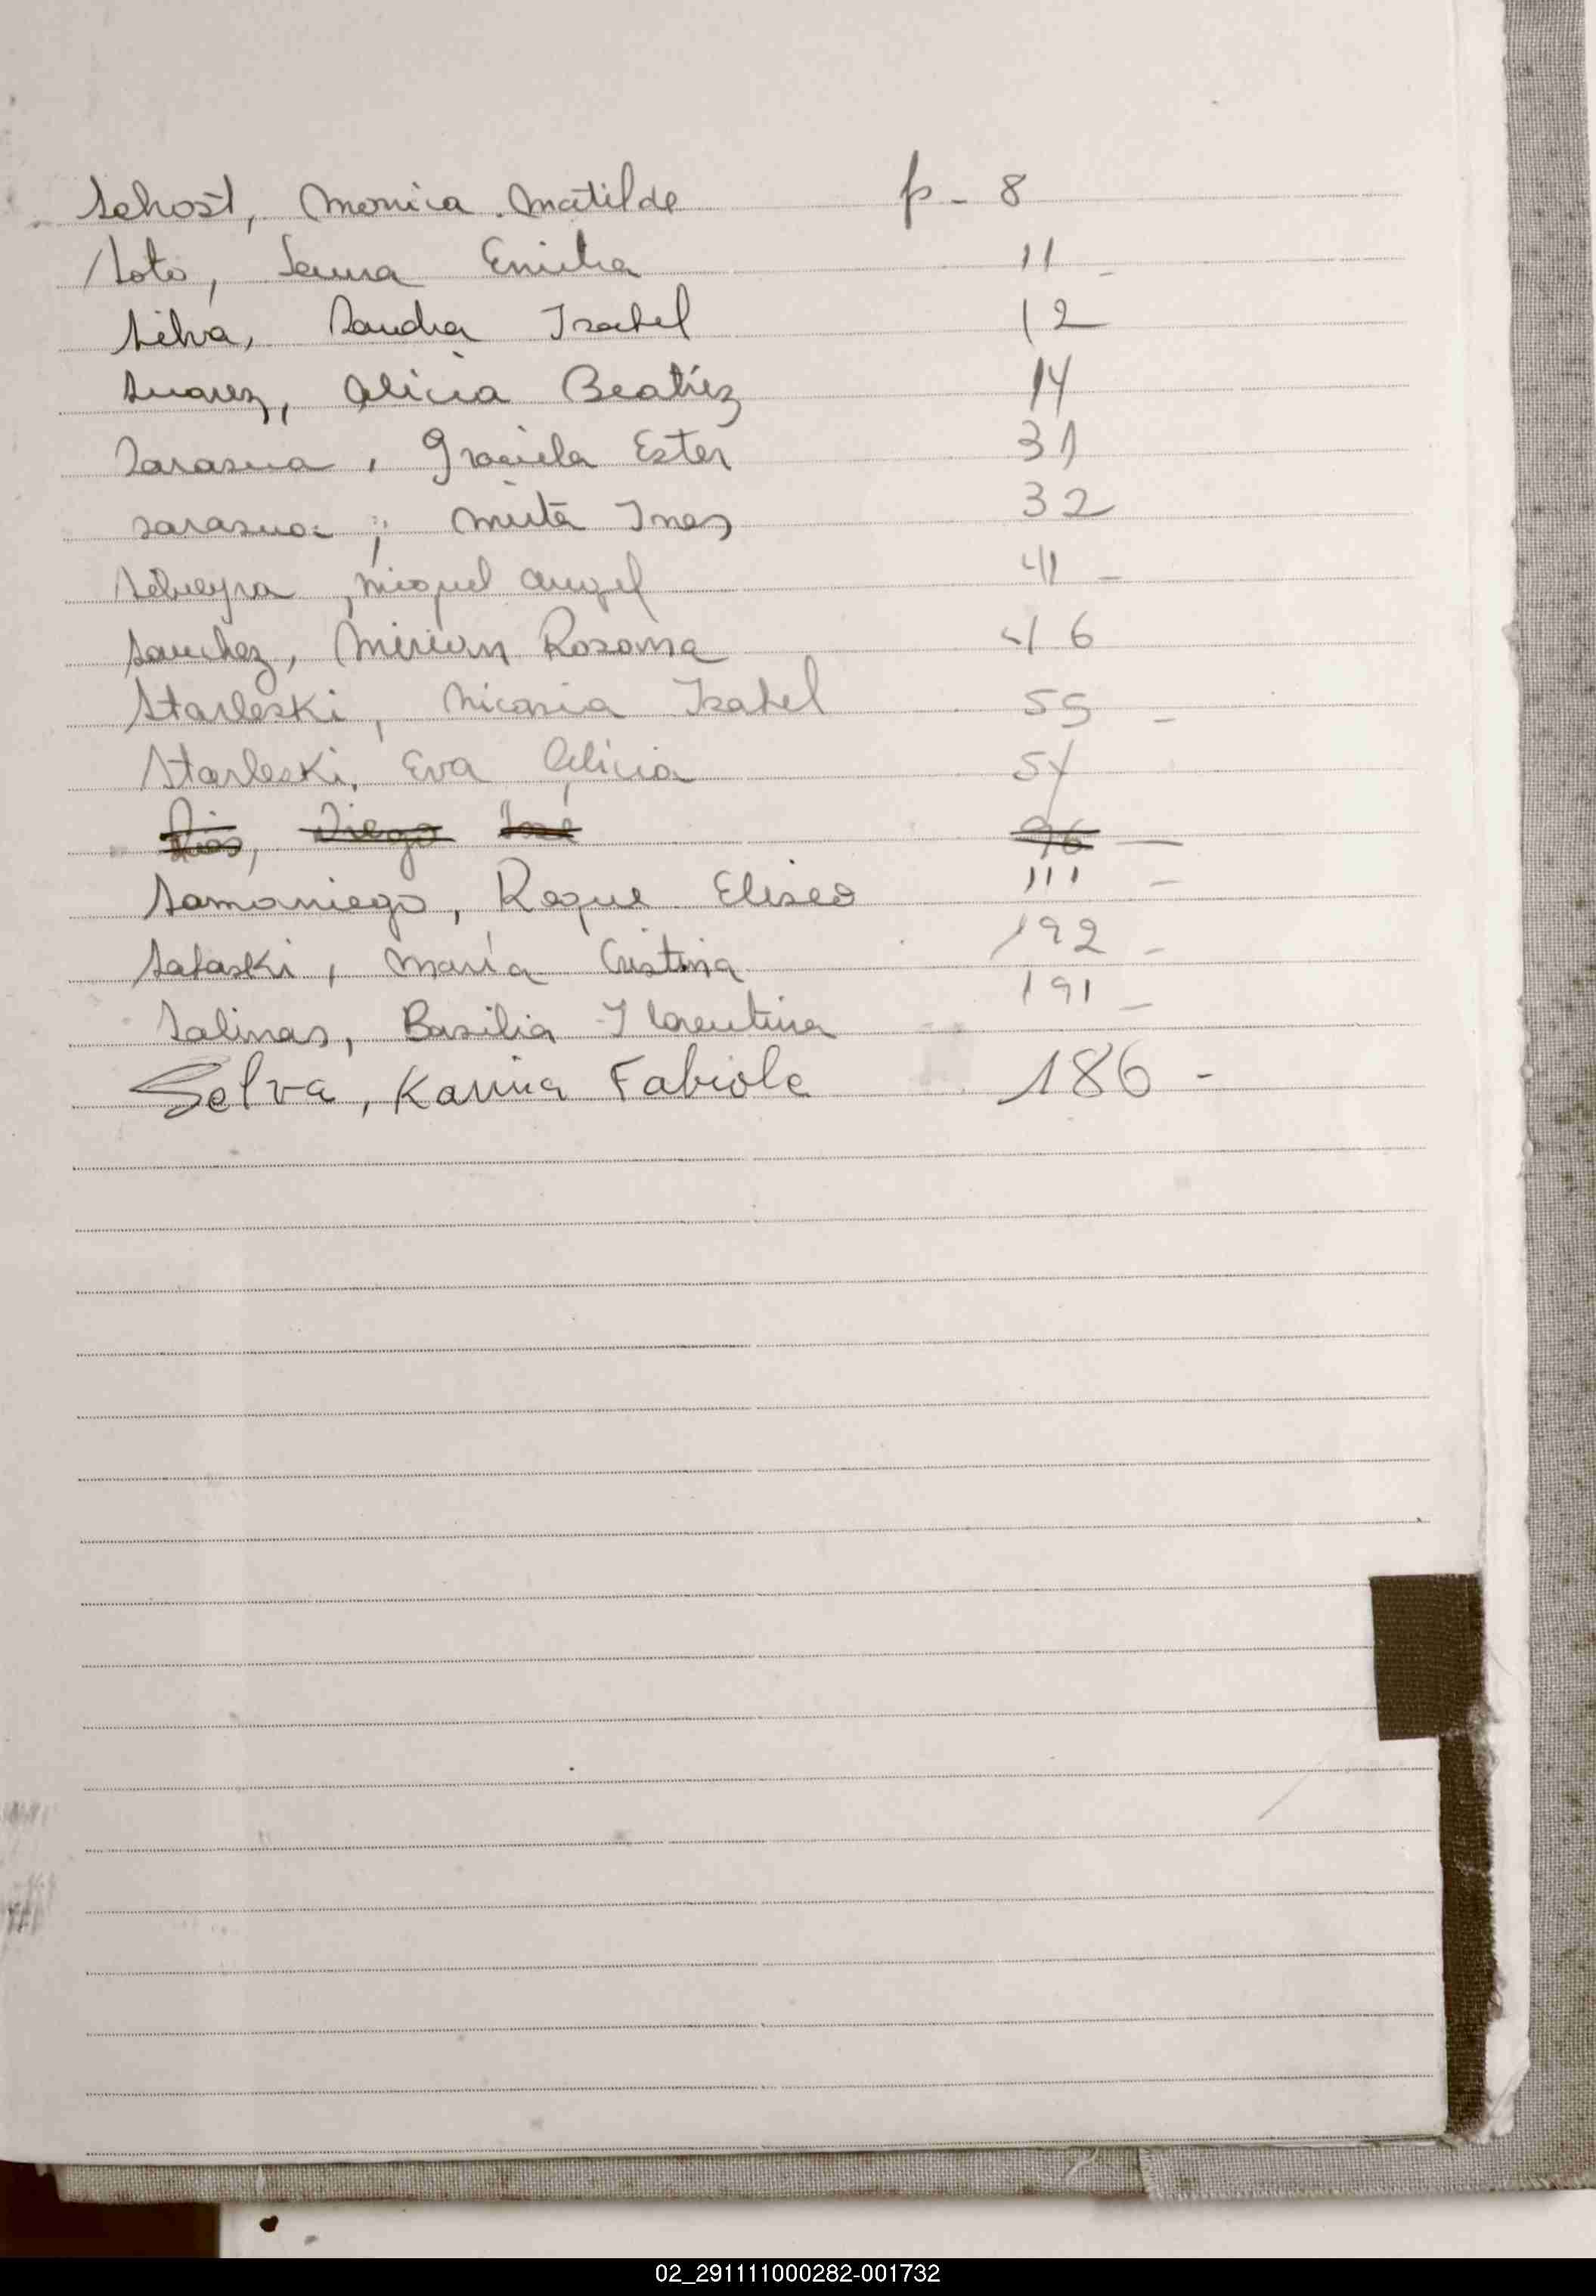 Schost, Monica Matilde p- 8
Soto, Laura Emilia 11 -
Silva, Sandra Isabel 12
Suarez, Alicia Beatriz 14
Sarasua, Graciela Ester 31
Sarasua, Mirta Ines 32
Silveyra, Miguel Angel 41 -
Sanchez, Mirian Rosana 46
Starleski, Nicasia Isabel 55 -
Starleski, Eva Alicia 54
Rios, Diego José 96 -
Samaniego, Roque Eliseo 111 -
Sataski, María Cristina 192 -
Salinas, Basilia Florentina 191 -
Selva, Karina Fabiola 186 -
02_291111000282-001732